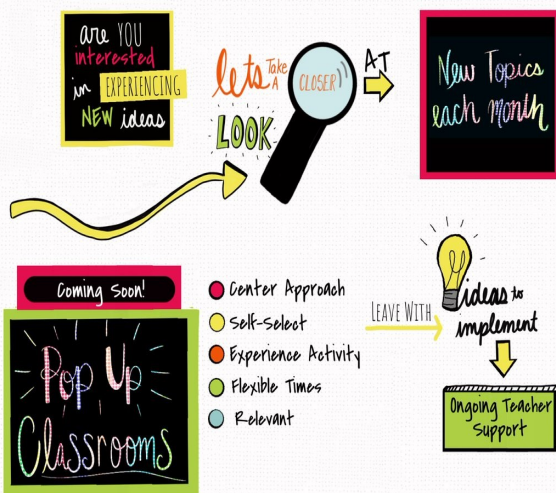 are YOU
interested
in EXPERIENCING
NEW ideas
lets Take
A
CLOSER
LOOK
AT
New Topics
each month
Coming Soon!
Pop Up
Classrooms
Center Approach
Self-Select
Experience Activity
Flexible Times
Relevant
LEAVE WITH
ideas to
implement
Ongoing Teacher
Support